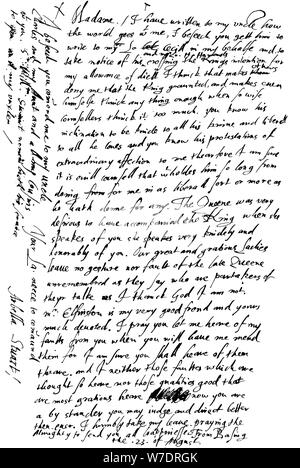 Madame. / I have written to my uncle how
the world goes wt me, I beseech you gett him to
write to my in my behalfe and to
take notice of his crossing the Kings intention for
my allowance of diett I thinck that makes
deny me that the King graunted, and makes even
himselfe thinck any thing enough when so wise
Counsellers thinck it too much. you know his
inclination to be kinde to all his kinne and liberall
to all he loves and you know his protestations of
extraordinary affection to me therefore I am sure
it is evill counsell that withholdes him so long from
doing for me in as liberall sort or more as
he hath donne for any. The Queene was very
desirous to have accompanied the King when she
speakes of you she speakes very kindely and
honorably of you. Our great and gratious Ladies
leave no gesture nor fault of the late Queene
unremembred as they say who are partakers of
theyr talke as I thanck God I am not.
mr. Elphinston is my very good friend and yours
much devoted. I pray you let me heare of my
faults from you when you will have me mend
them for I am sure you shall heare of them
theare, and if neither those faults which are
thought so heare nor those qualities good that
are most gratious heare now you are
a by stander you may judge and direct better
then ever. I humbly take my leave praying the
Almighty to send you all happinesse. From Basing
the .23. of August.
I beseech you commend me to my uncle
Charles and my Aunt
Your La: neece to command
Arbella Stuart. /
alamy
W7DRGK